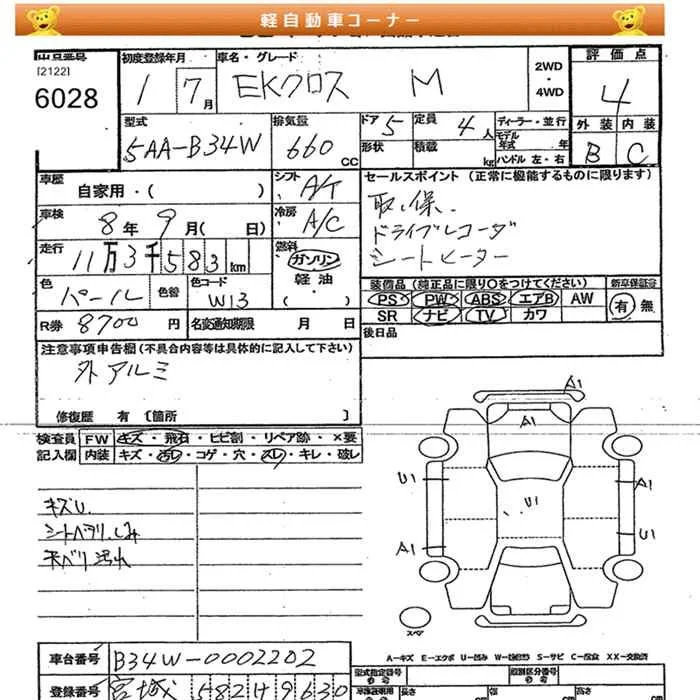 軽自動車コーナー
出品番号
[2122]
6028
初度登録年月
1 7月
車名・グレード
EKクロス M
2WD
・
4WD
評価点
4
型式
5AA-B34W
排気量
660 CC
ドア 5
定員 4 人
ディーラー・並行
モデル年式 年
ハンドル 左・右
形状
積載 kg
外装 内装
B C
車歴
自家用・( )
シフト
A/T
セールスポイント (正常に機能するものに限ります)
取、保、
ドライブレコーダ
シートヒーター
車検
8年 9月( 日)
冷房
A/C
走行
11万3千583km
燃料
ガソリン
軽油
・( )
色
パール
色替
色コード
W13
装備品 (純正品に限り○をつけてください)
新車保証書
PS PW ABS エアB AW
SR ナビ TV カワ
有 無
R券 8700 円
名変通知期限 月 日
後日品
注意事項申告欄 (不具合内容等は具体的に記入して下さい)
外アルミ
修復歴 有 〔箇所 〕
検査員
記入欄
FW キズ・飛石・ヒビ割・リペア跡・×要
内装 キズ・汚レ・コゲ・穴・スレ・キレ・破レ
キズU.
シートヘタリ、しみ
天ベリ汚れ
A1
A1
U1
A1
U1
A1
U1
スペア
A-キズ E-エクボ U-凹み W-波修理 S-サビ C-腐食 XX-交換済
車台番号
B34W-0002202
登録番号
宮城 582 せ 9630
型式指定番号
類別区分番号
長さ
幅
高さ